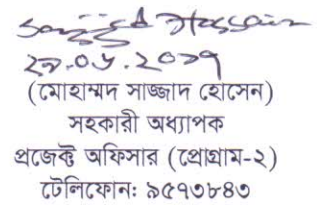 Sazzad Hossain
২৯.০৬.২০১৭
(মোহাম্মদ সাজ্জাদ হোসেন)
সহকারী অধ্যাপক
প্রজেক্ট অফিসার (প্রোগ্রাম-২)
টেলিফোন: ৯৫৭৩৮৪৩